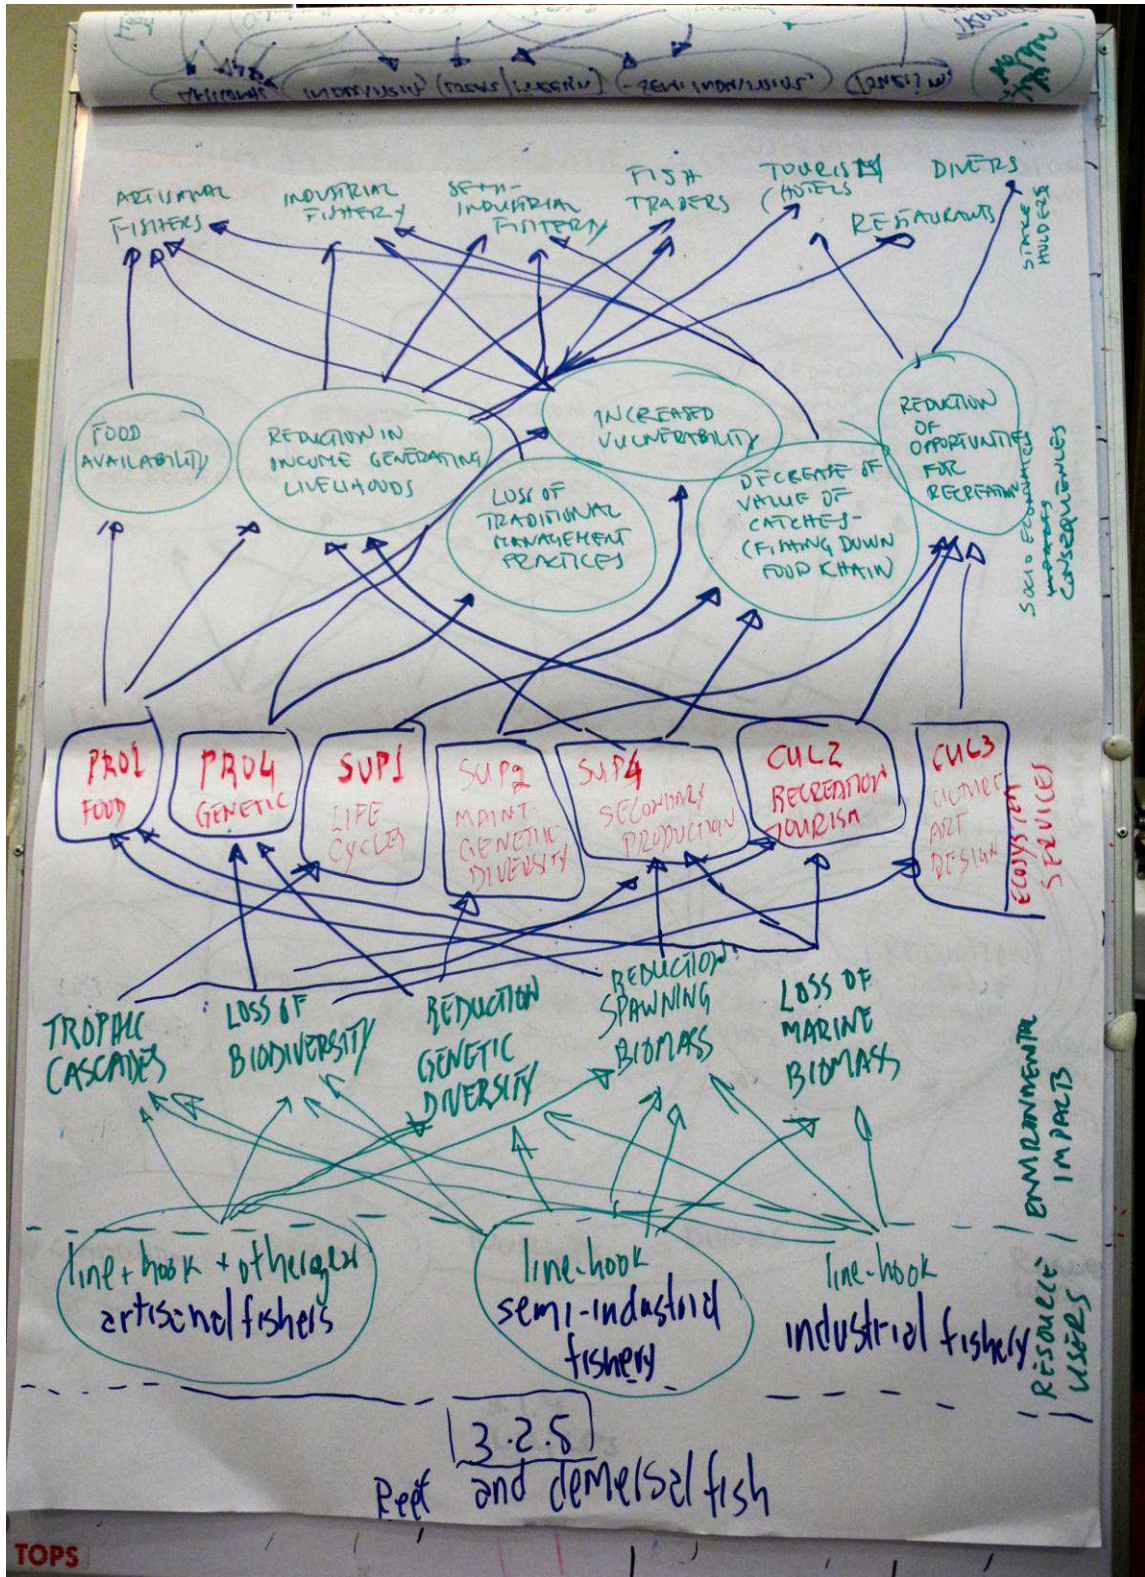 ARTISANAL
FISHERS
INDUSTRIAL
FISHERY
SEMI-
INDUSTRIAL
FISHERY
FISH
TRADERS
TOURISTS/
HOTELS
RESTAURANTS
DIVERS
STAKE
HOLDERS
FOOD
AVAILABILITY
REDUCTION IN
INCOME GENERATING
LIVELIHOODS
LOSS OF
TRADITIONAL
MANAGEMENT
PRACTICES
INCREASED
VULNERABILITY
DECREASE OF
VALUE OF
CATCHES-
(FISHING DOWN
FOOD CHAIN
REDUCTION
OF
OPPORTUNITIES
FOR
RECREATION
SOCIO ECONOMICS
CONSEQUENCES
PRO1
FOOD
PRO4
GENETIC
SUP1
LIFE
CYCLES
SUP2
MAINT.
GENETIC
DIVERSITY
SUP4
SECONDARY
PRODUCTION
CUL2
RECREATION
TOURISM
CUL3
CULTURE
ART
DESIGN
ECOSYSTEM
SERVICES
TROPHIC
CASCADES
LOSS OF
BIODIVERSITY
REDUCTION
GENETIC
DIVERSITY
REDUCTION
SPAWNING
BIOMASS
LOSS OF
MARINE
BIOMASS
ENVIRONMENTAL
IMPACTS
line+hook+other gear
artisanal fishers
line-hook
semi-industrial
fishery
line-hook
industrial fishery
RESOURCE
USERS
3.2.5
Reef and demersal fish
TOPS